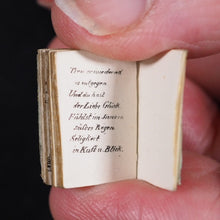 Treu
es entgegen
Und du hast
der Liebe Glück.
Fühlst im Innern
süßes Regen
Seligkeit
in Kuß u. Blick.